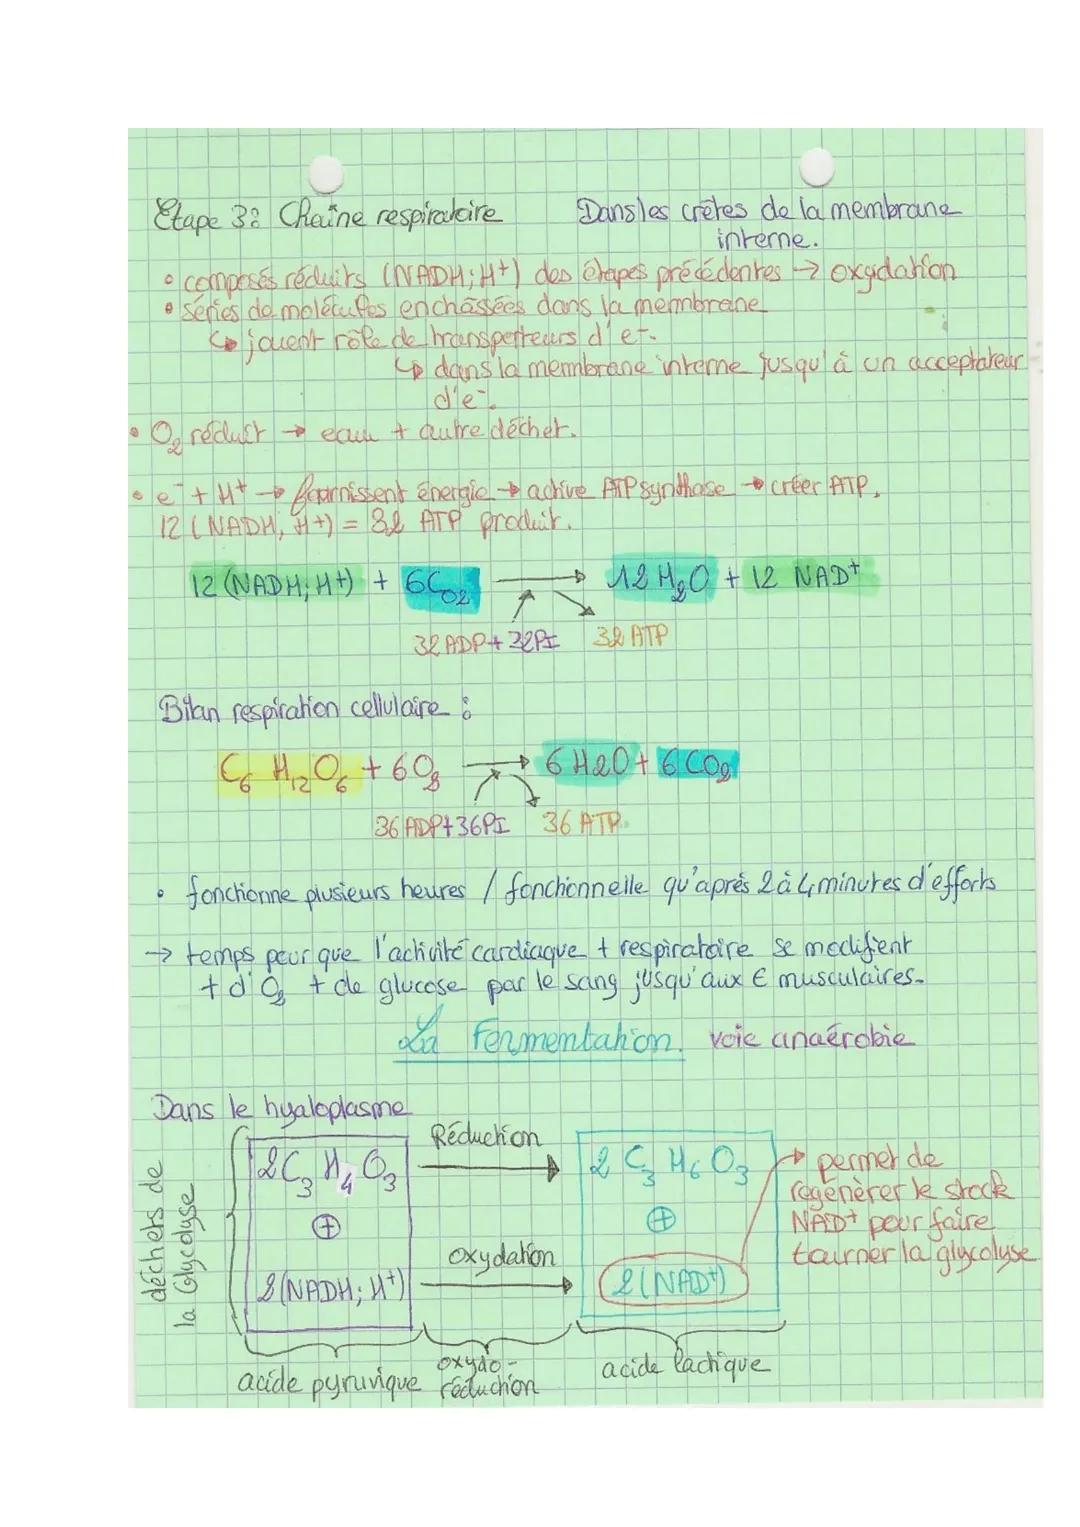 Etape 3: Chaîne respiratoire Dans les crêtes de la membrane
interne.
• composés réduits (NADH; H+) des étapes précédentes → oxydation
• séries de molécules enchâssées dans la membrane
↳ jouent rôle de transporteurs d'e-.
↳ dans la membrane interne jusqu'à un acceptateur
d'e-.
• O2 réduit → eau + autre déchet.
• e- + H+ → fournissent énergie → active ATP synthase → créer ATP.
12 (NADH, H+) = 32 ATP produit.
12 (NADH; H+) + 6CO2 → 12 H2O + 12 NAD+
32 ADP + 32PI 32 ATP
Bilan respiration cellulaire :
C6 H12 O6 + 6O2 → 6 H2O + 6 CO2
36 ADP + 36PI 36 ATP
• fonctionne plusieurs heures / fonctionnelle qu'aprés 2 à 4 minutes d'efforts
→ temps pour que l'activité cardiaque + respiratoire se modifient
+ d'O2 + de glucose par le sang jusqu'aux € musculaires.
La Fermentation. voie anaérobie
Dans le hyaloplasme
déchets de
la Glycolyse
2C3 H4 O3 Réduction 2 C3 H6 O3
⊕ ⊕
2(NADH; H+) oxydation 2(NAD+)
→ permet de
regénèrer le stock
NAD+ pour faire
tourner la glycolyse
acide pyruvique oxydo-
réduction acide lactique